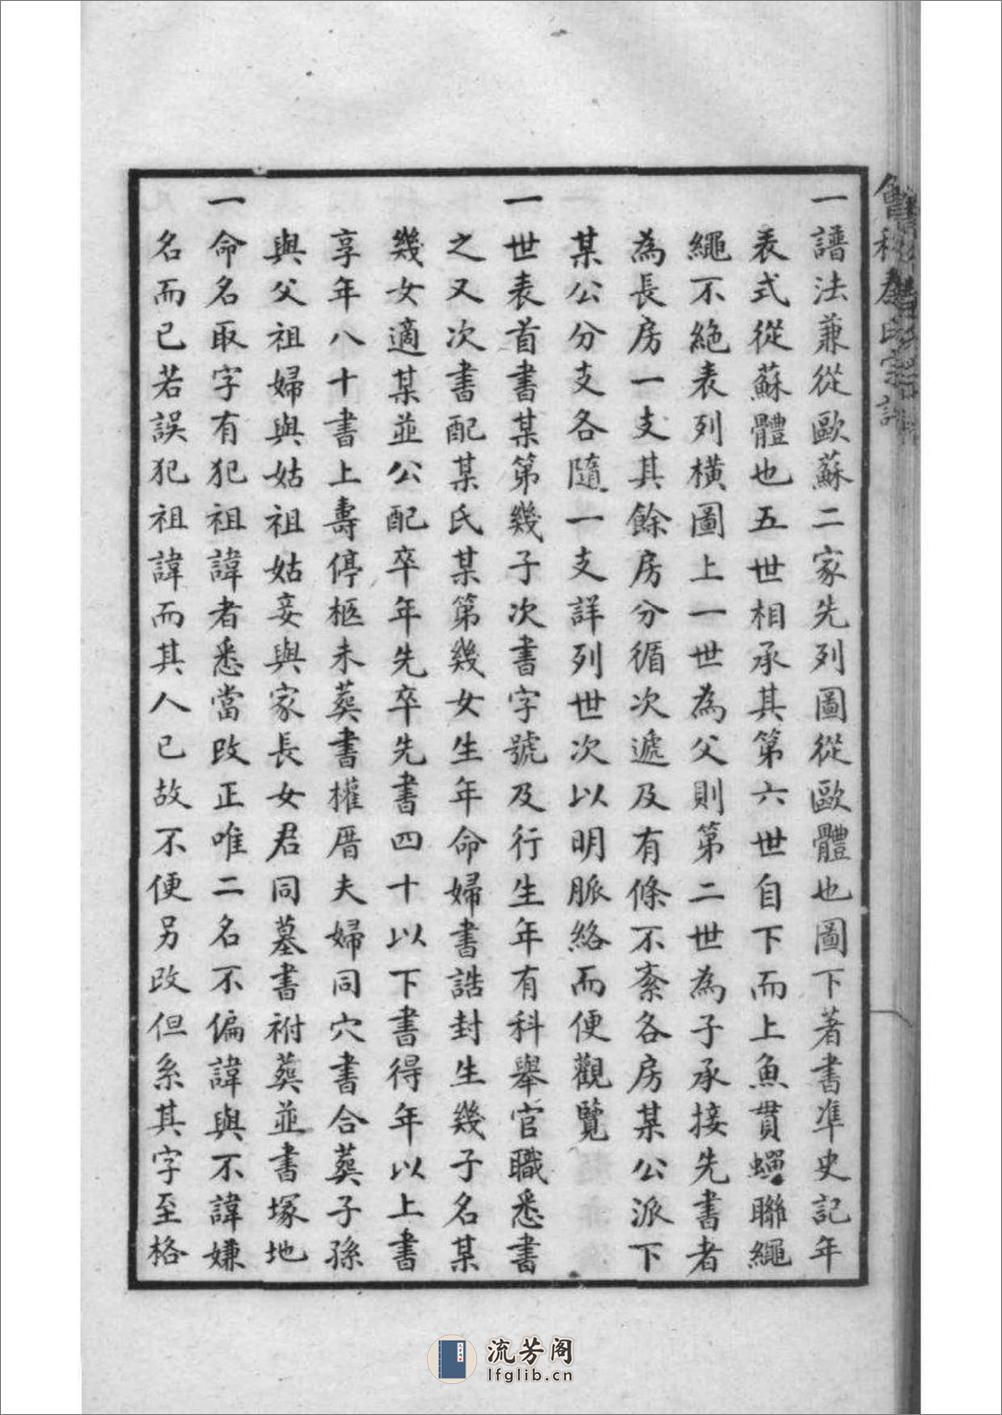 一譜法兼從歐蘇二家先列圖從歐體也圖下著書準史記年
表式從蘇體也五世相承其第六世自下而上魚貫蟬聯繩
繩不絕表列橫圖上一世為父則第二世為子承接先書者
為長房一支其餘房分循次遞及有條不紊各房某公派下
某公分支各隨一支詳列世次以明脈絡而便觀覽
一世表首書某第幾子次書字號及行生年有科舉官職悉書
之又次書配某氏某第幾女生年命婦書誥封生幾子名某
幾女適某並公配卒年先卒先書四十以下書得年以上書
享年八十書上壽停柩未葬書權厝夫婦同穴書合葬子孫
與父祖婦與姑祖姑妾與家長女君同墓書祔葬並書塚地
一命名取字有犯祖諱者悉當改正唯二名不偏諱與不諱嫌
名而已若誤犯祖諱而其人已故不便另改但系其字至格
流芳阁
lfglib.cn